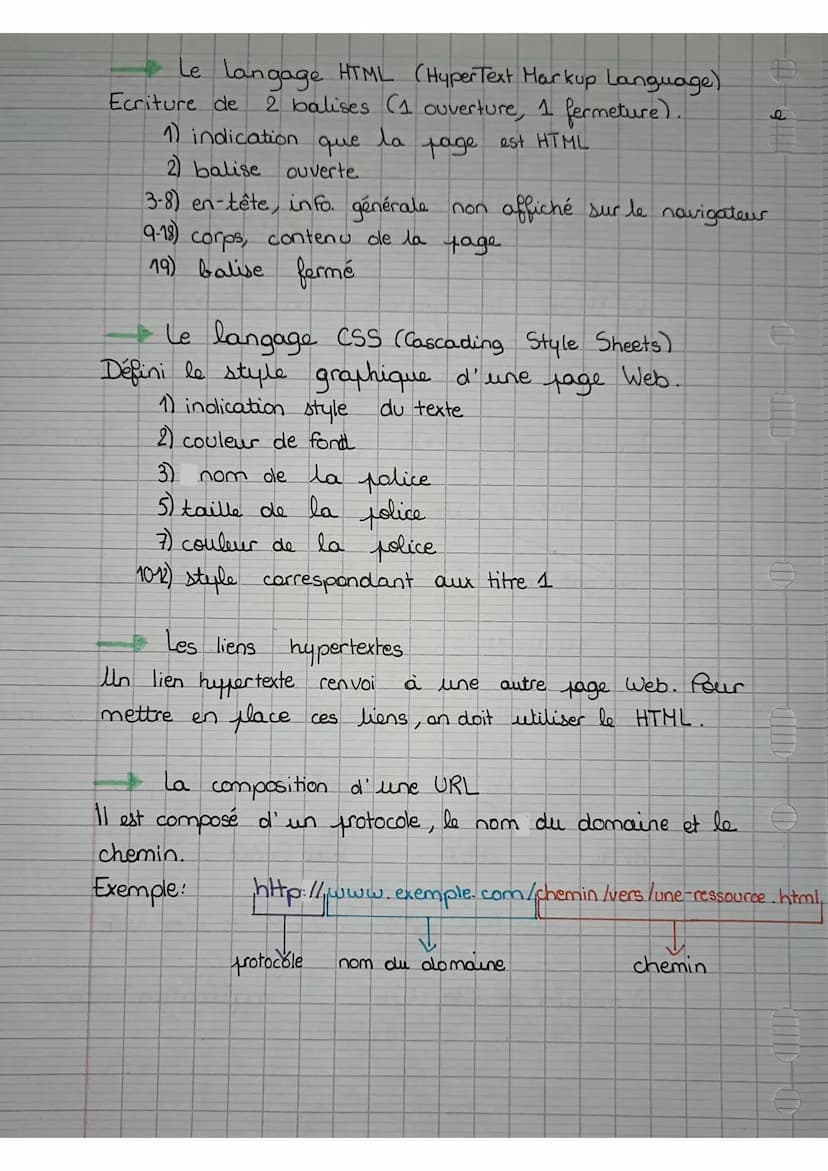 → Le langage HTML (HyperText Markup Language)
Ecriture de 2 balises (1 ouverture, 1 fermeture).
e
1) indication que la page est HTML
2) balise ouverte
3-8) en-tête, info. générale non affiché sur le navigateur
9-18) corps, contenu de la page
19) balise fermé
→ Le langage CSS (Cascading Style Sheets)
Défini le style graphique d'une page Web.
1) indication style du texte
2) couleur de fond
3) nom de la police
5) taille de la police
7) couleur de la police
10-12) style correspondant aux titre 1
→ Les liens hypertextes
Un lien hypertexte renvoi à une autre page Web. Pour
mettre en place ces liens, on doit utiliser le HTML.
→ La composition d'une URL
Il est composé d'un protocole, le nom du domaine et le
chemin.
Exemple: http://www.exemple.com/chemin/vers/une-ressource.html
protocole nom du domaine chemin